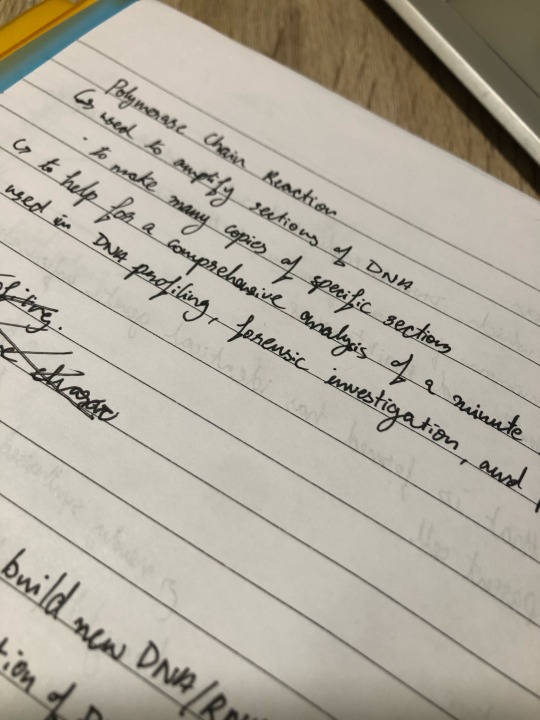 Polymerase Chain Reaction
↳ used to amplify sections of DNA
· to make many copies of specific sections
↳ to help for a comprehensive analysis of a minute
used in DNA profiling, forensic investigation, and
build new DNA/
of